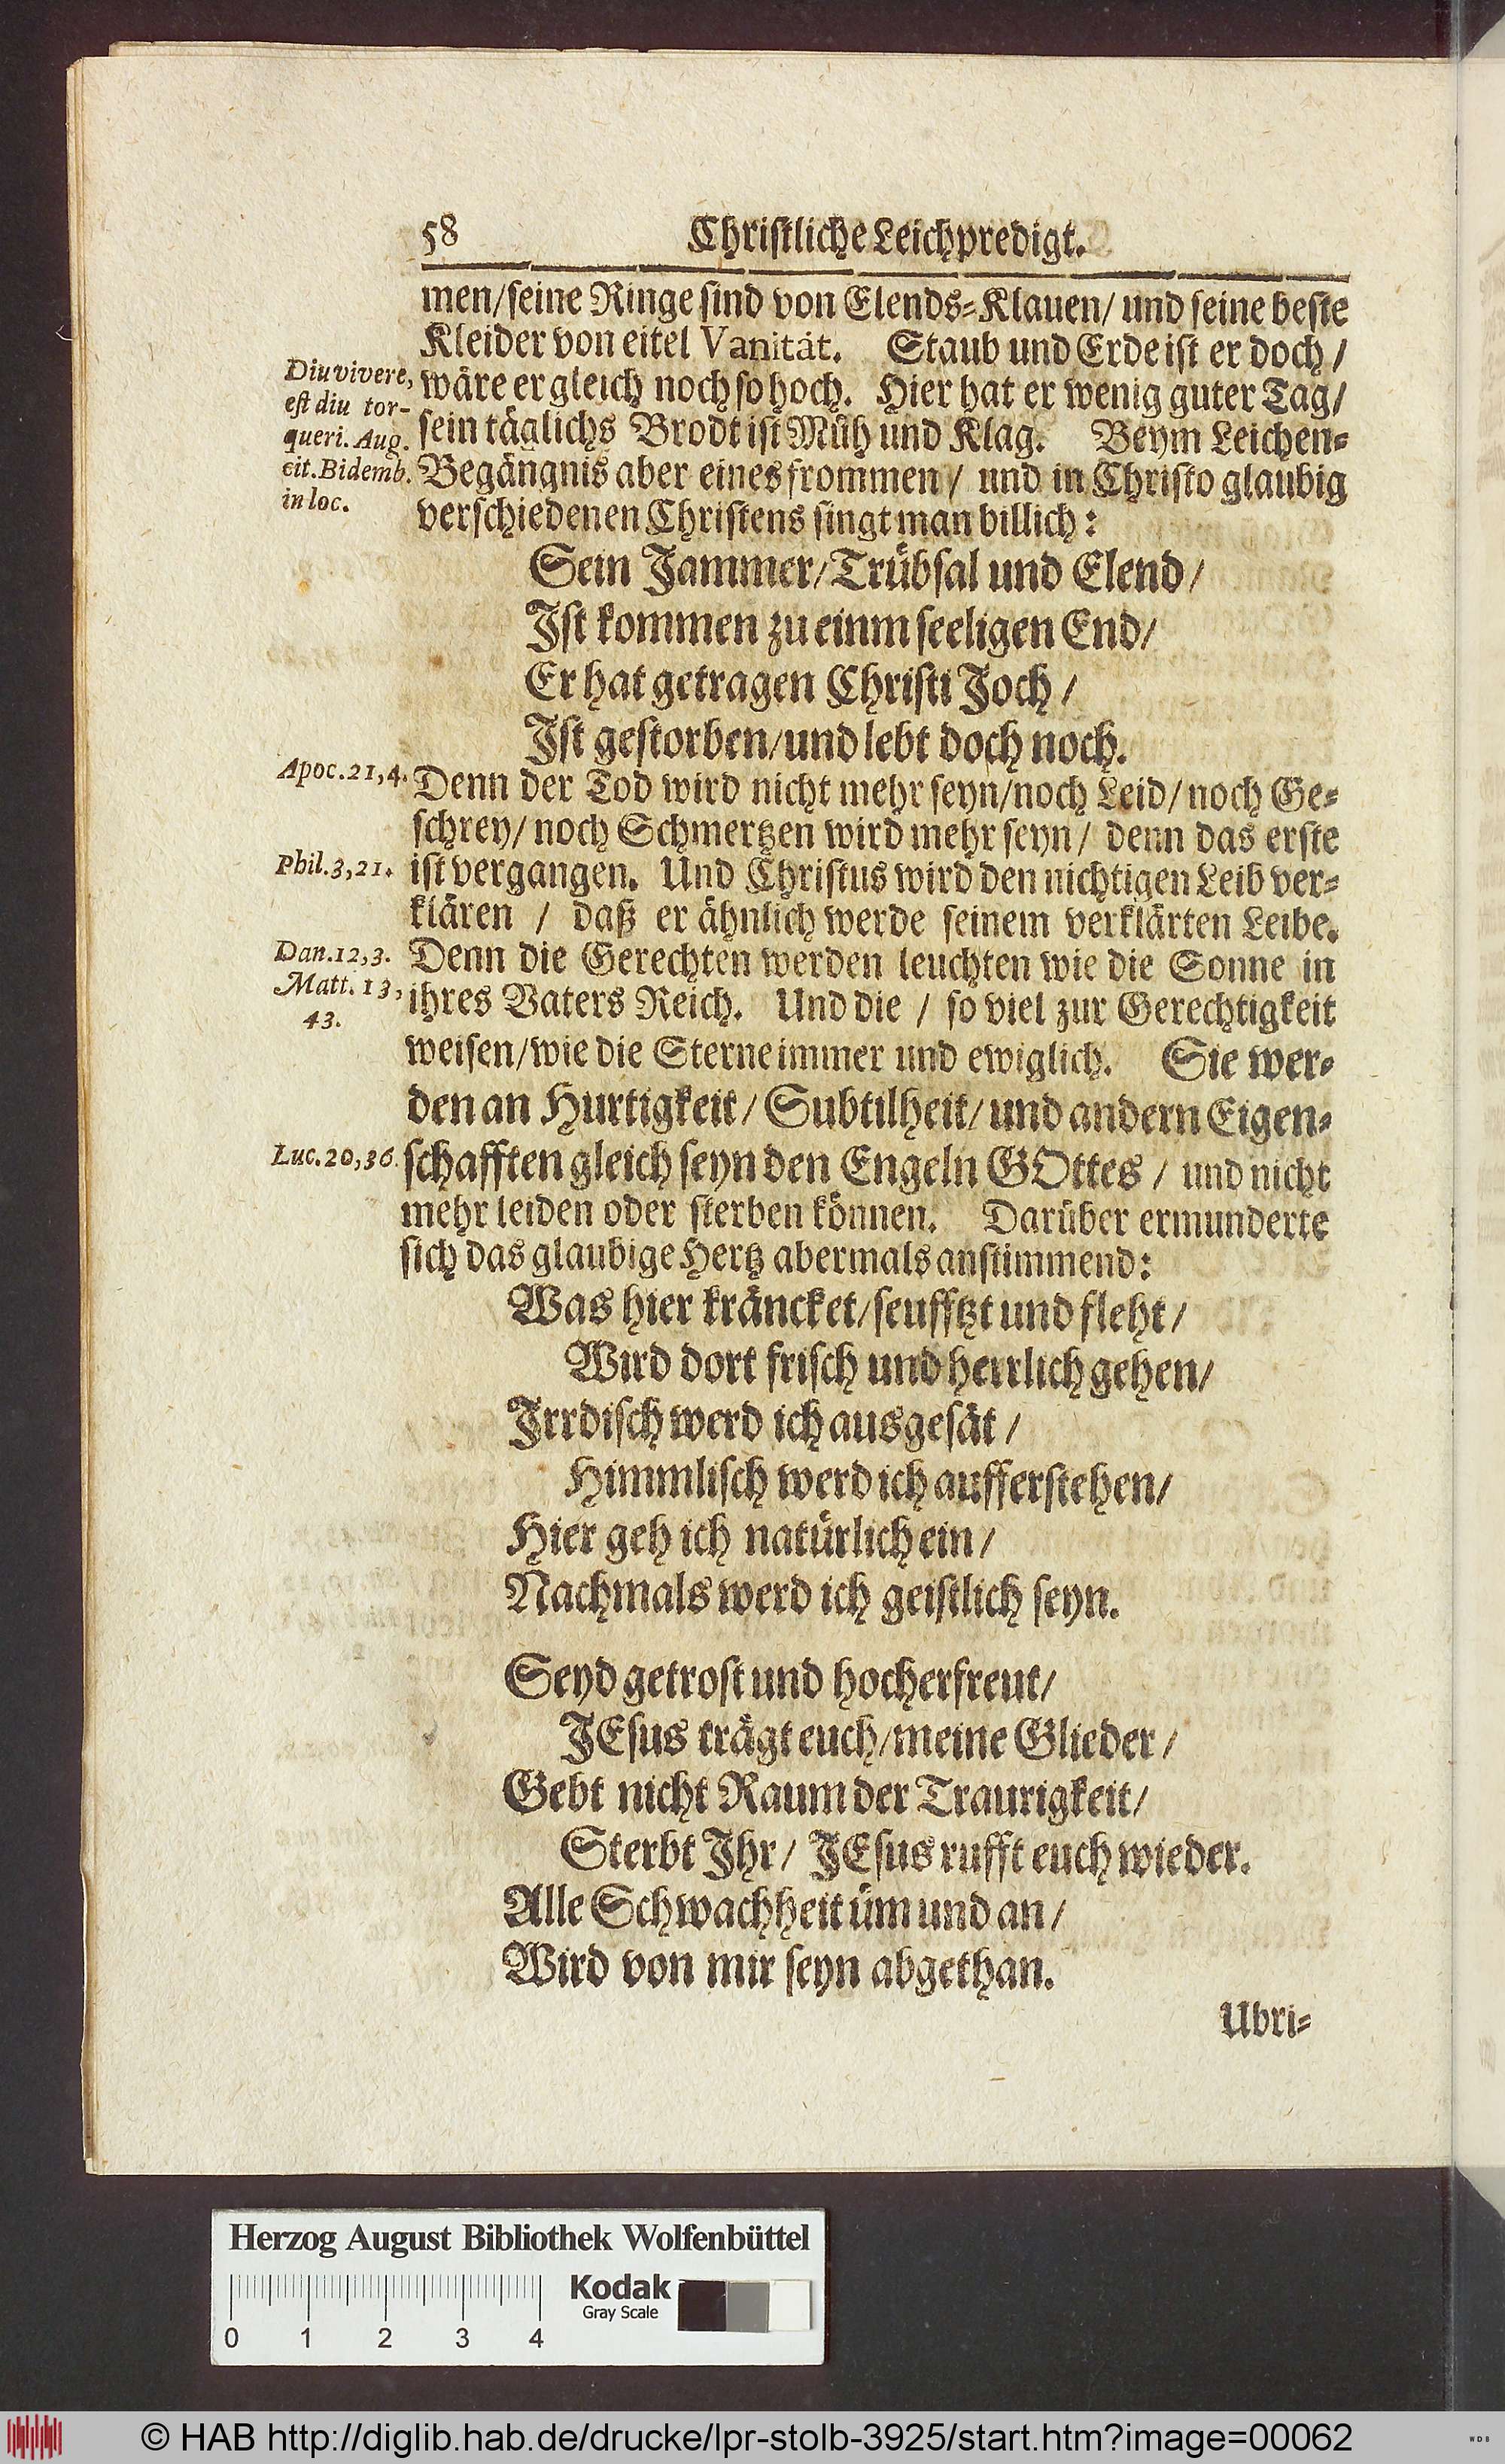 58 Christliche Leichpredigt.
men/seine Ringe sind von Elends-Klauen/ und seine beste
Kleider von eitel Vanität. Staub und Erde ist er doch /
wäre er gleich noch so hoch. Hier hat er wenig guter Tag/
sein täglichs Brodt ist Müh und Klag. Beym Leichen-
Begängnis aber eines frommen / und in Christo glaubig
verschiedenen Christens singt man billich:
Diu vivere,
est diu tor-
queri. Aug.
cit. Bidemb.
in loc.
Sein Jammer/Trübsal und Elend/
Ist kommen zu einm seeligen End/
Er hat getragen Christi Joch /
Ist gestorben/und lebt doch noch.
Apoc. 21, 4.
Denn der Tod wird nicht mehr seyn/noch Leid/ noch Ge-
schrey/ noch Schmertzen wird mehr seyn/ denn das erste
Phil. 3, 21.
ist vergangen. Und Christus wird den nichtigen Leib ver-
klären / daß er ähnlich werde seinem verklärten Leibe.
Dan. 12, 3.
Matt. 13,
43.
Denn die Gerechten werden leuchten wie die Sonne in
ihres Vaters Reich. Und die / so viel zur Gerechtigkeit
weisen/wie die Sterne immer und ewiglich. Sie wer-
den an Hurtigkeit/ Subtilheit/ und andern Eigen-
Luc. 20, 36.
schafften gleich seyn den Engeln GOttes / und nicht
mehr leiden oder sterben können. Darüber ermunderte
sich das glaubige Hertz abermals anstimmend:
Was hier kräncket/seufftzt und fleht/
Wird dort frisch und herrlich gehen/
Irrdisch werd ich ausgesät /
Himmlisch werd ich aufferstehen/
Hier geh ich natürlich ein/
Nachmals werd ich geistlich seyn.
Seyd getrost und hocherfreut/
JEsus trägt euch/meine Glieder /
Gebt nicht Raum der Traurigkeit/
Sterbt Ihr/ JEsus rufft euch wieder.
Alle Schwachheit üm und an/
Wird von mir seyn abgethan.
Ubri-
Herzog August Bibliothek Wolfenbüttel
Kodak
Gray Scale
0 1 2 3 4
© HAB http://diglib.hab.de/drucke/lpr-stolb-3925/start.htm?image=00062
WDB